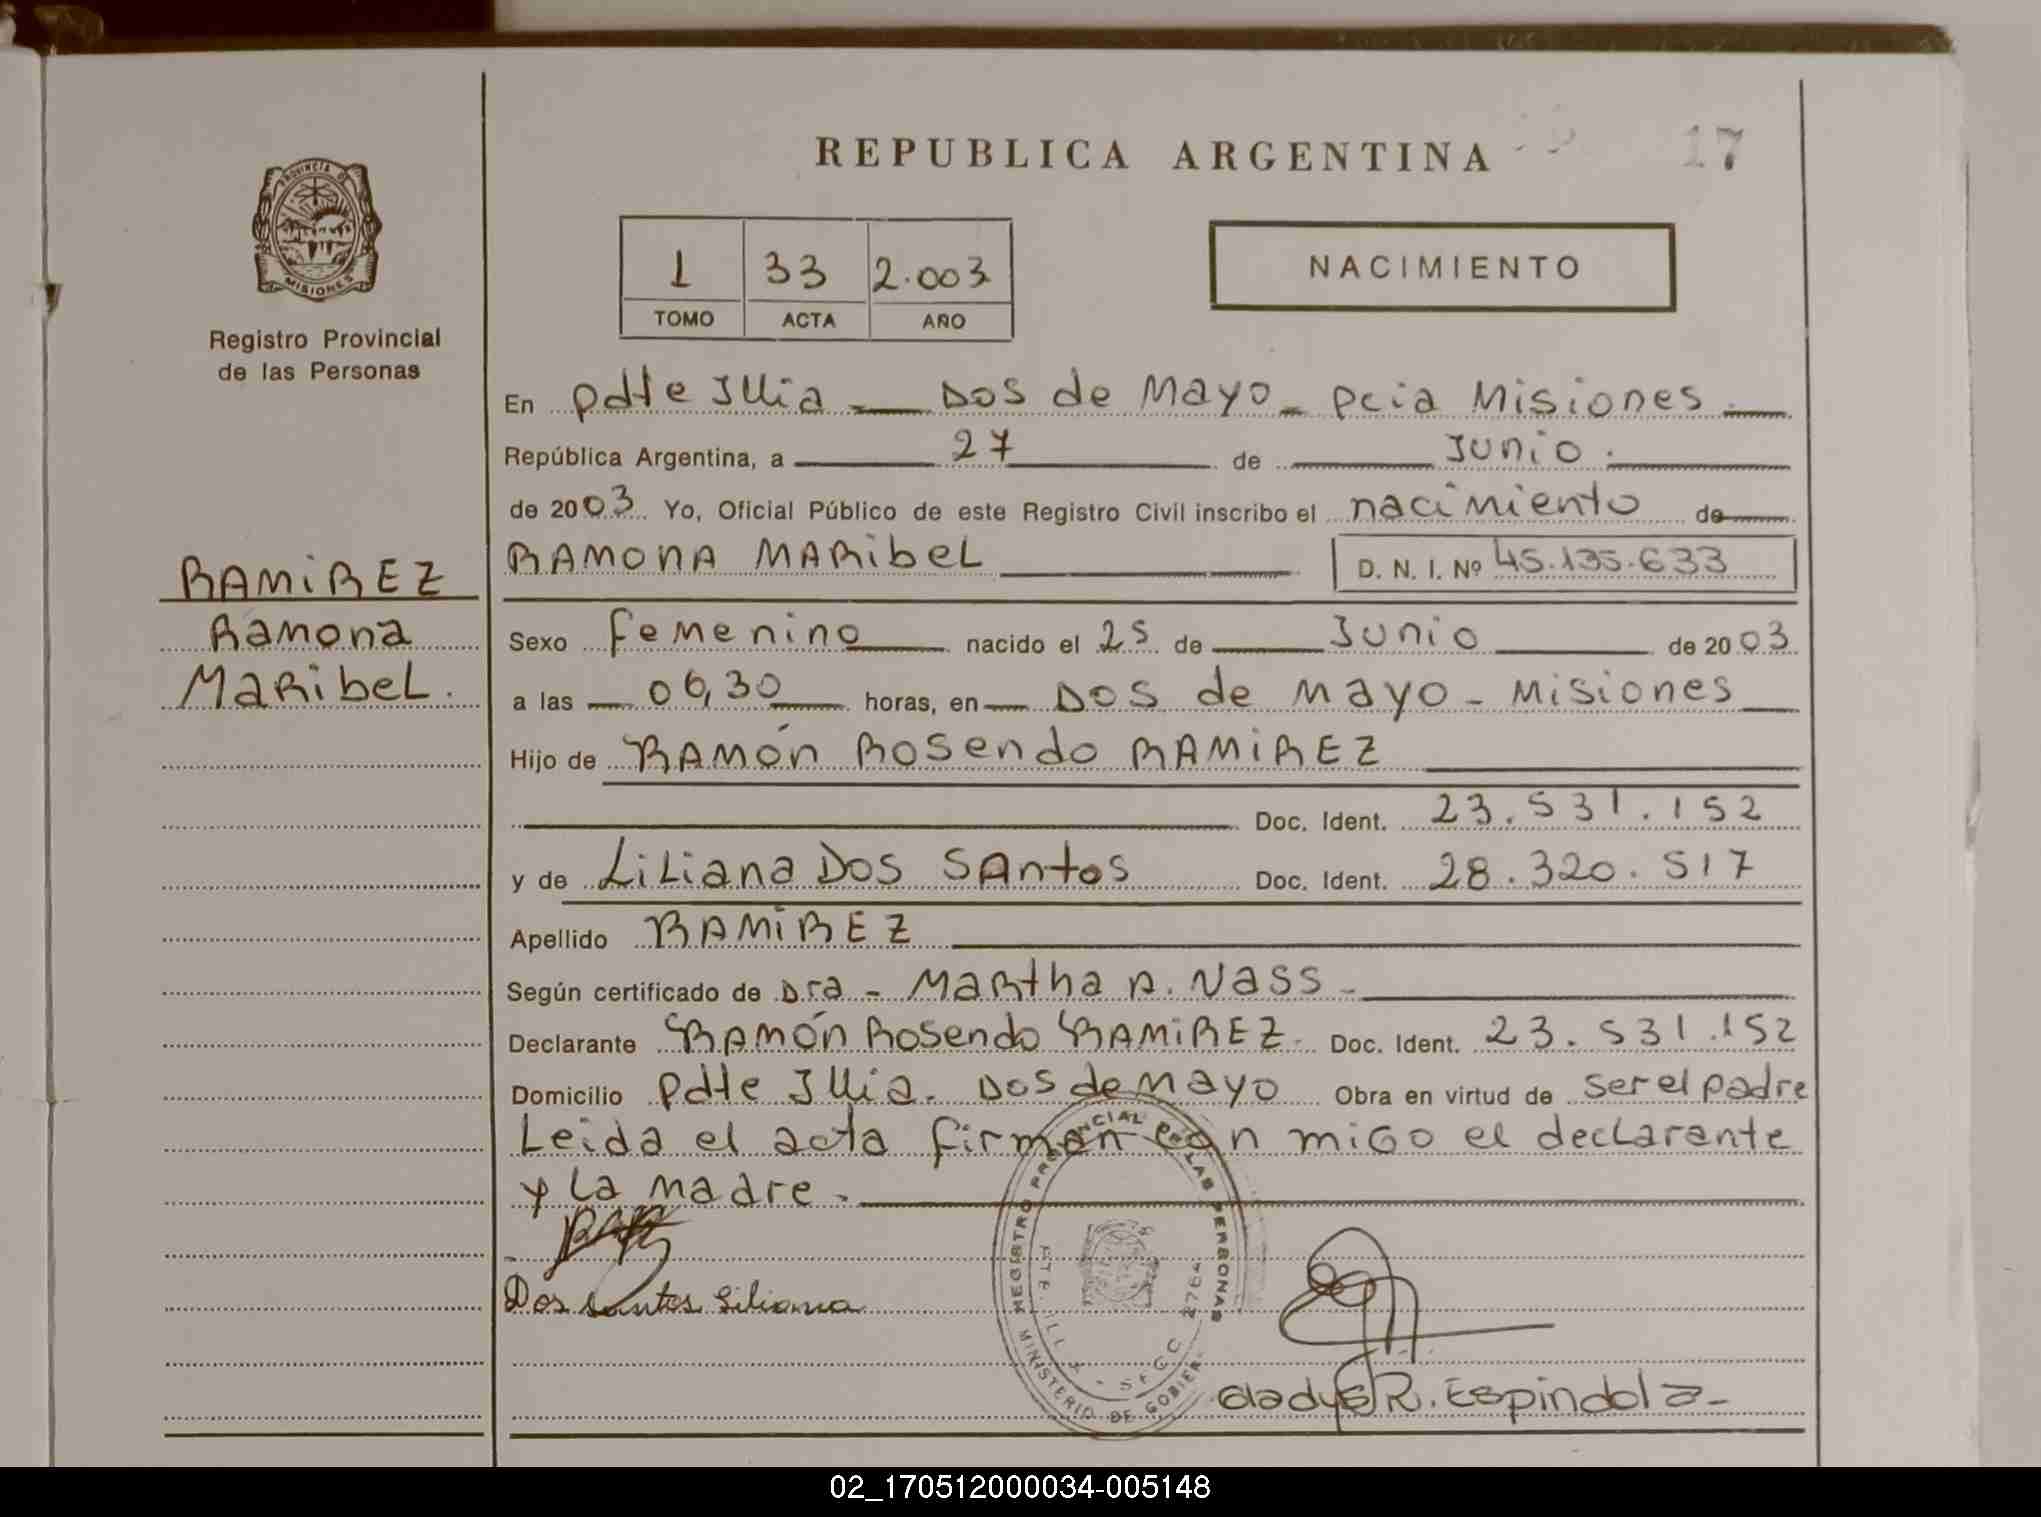 REPUBLICA ARGENTINA
17
PROVINCIA DE MISIONES
Registro Provincial
de las Personas
1 33 2.003
TOMO ACTA AÑO
NACIMIENTO
En pdte Illia — Dos de Mayo - pcia Misiones.
República Argentina, a 27 de Junio.
de 2003. Yo, Oficial Público de este Registro Civil inscribo el nacimiento de
RAMONA MARibeL D. N. I. Nº 45.135.633
RAMIREZ
Ramona
MaribeL.
Sexo femenino nacido el 25 de Junio de 2003
a las 06,30 horas, en Dos de Mayo - Misiones
Hijo de RAMÓN Rosendo RAMIREZ
Doc. Ident. 23.531.152
y de LiLiana Dos SAntos Doc. Ident. 28.320.517
Apellido RAMIREZ
Según certificado de Dra - Martha R. Nass -
Declarante RAMÓN Rosendo RAMIREZ - Doc. Ident. 23.531.152
Domicilio pdte Illia. Dos de Mayo Obra en virtud de ser el padre
Leida el acta firman con migo el declarante
y la madre.-
Dos santos Liliana
REGISTRO PROVINCIAL DE LAS PERSONAS
MINISTERIO DE GOBIER
Gladys R. Espindola-
02_170512000034-005148